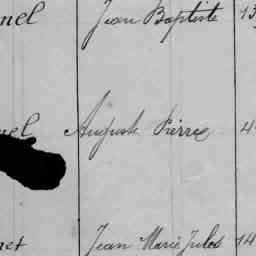 nel Jean Baptiste 13
nel Auguste Pierre 4
net Jean Marie Jules 14